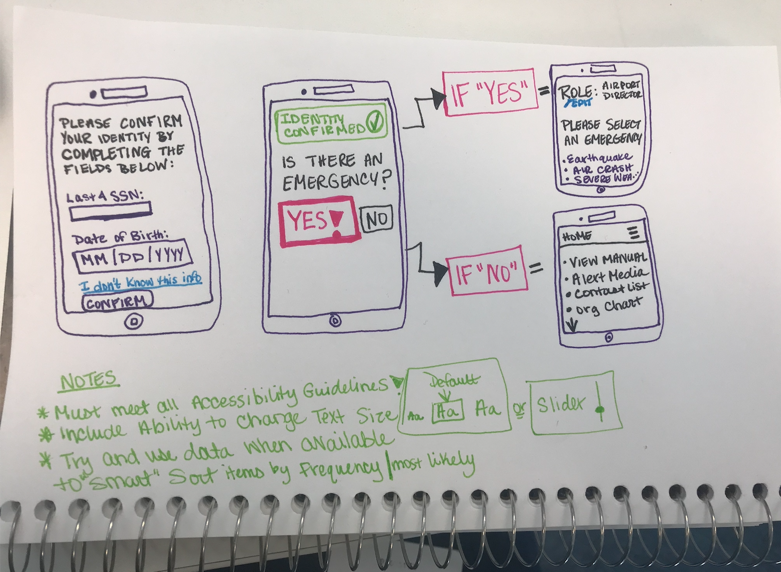 PLEASE CONFIRM
YOUR IDENTITY BY
COMPLETING THE
FIELDS BELOW:
Last 4 SSN:
Date of Birth:
MM/DD/YYYY
I don't know this info
CONFIRM
IDENTITY
CONFIRMED
IS THERE AN
EMERGENCY?
YES!
NO
IF "YES" =
ROLE: AIRPORT
DIRECTOR
/EDIT
PLEASE SELECT
AN EMERGENCY
• Earthquake
• AIR CRASH
• SEVERE WEA..
IF "NO" =
HOME
• VIEW MANUAL
• Alert Media
• Contact List
• Org Chart
NOTES
* Must meet all Accessibility Guidelines
* Include Ability to change Text Size
Default
Aa Aa Aa or Slider
* Try and use data when available
to "smart" Sort items by frequency/most likely